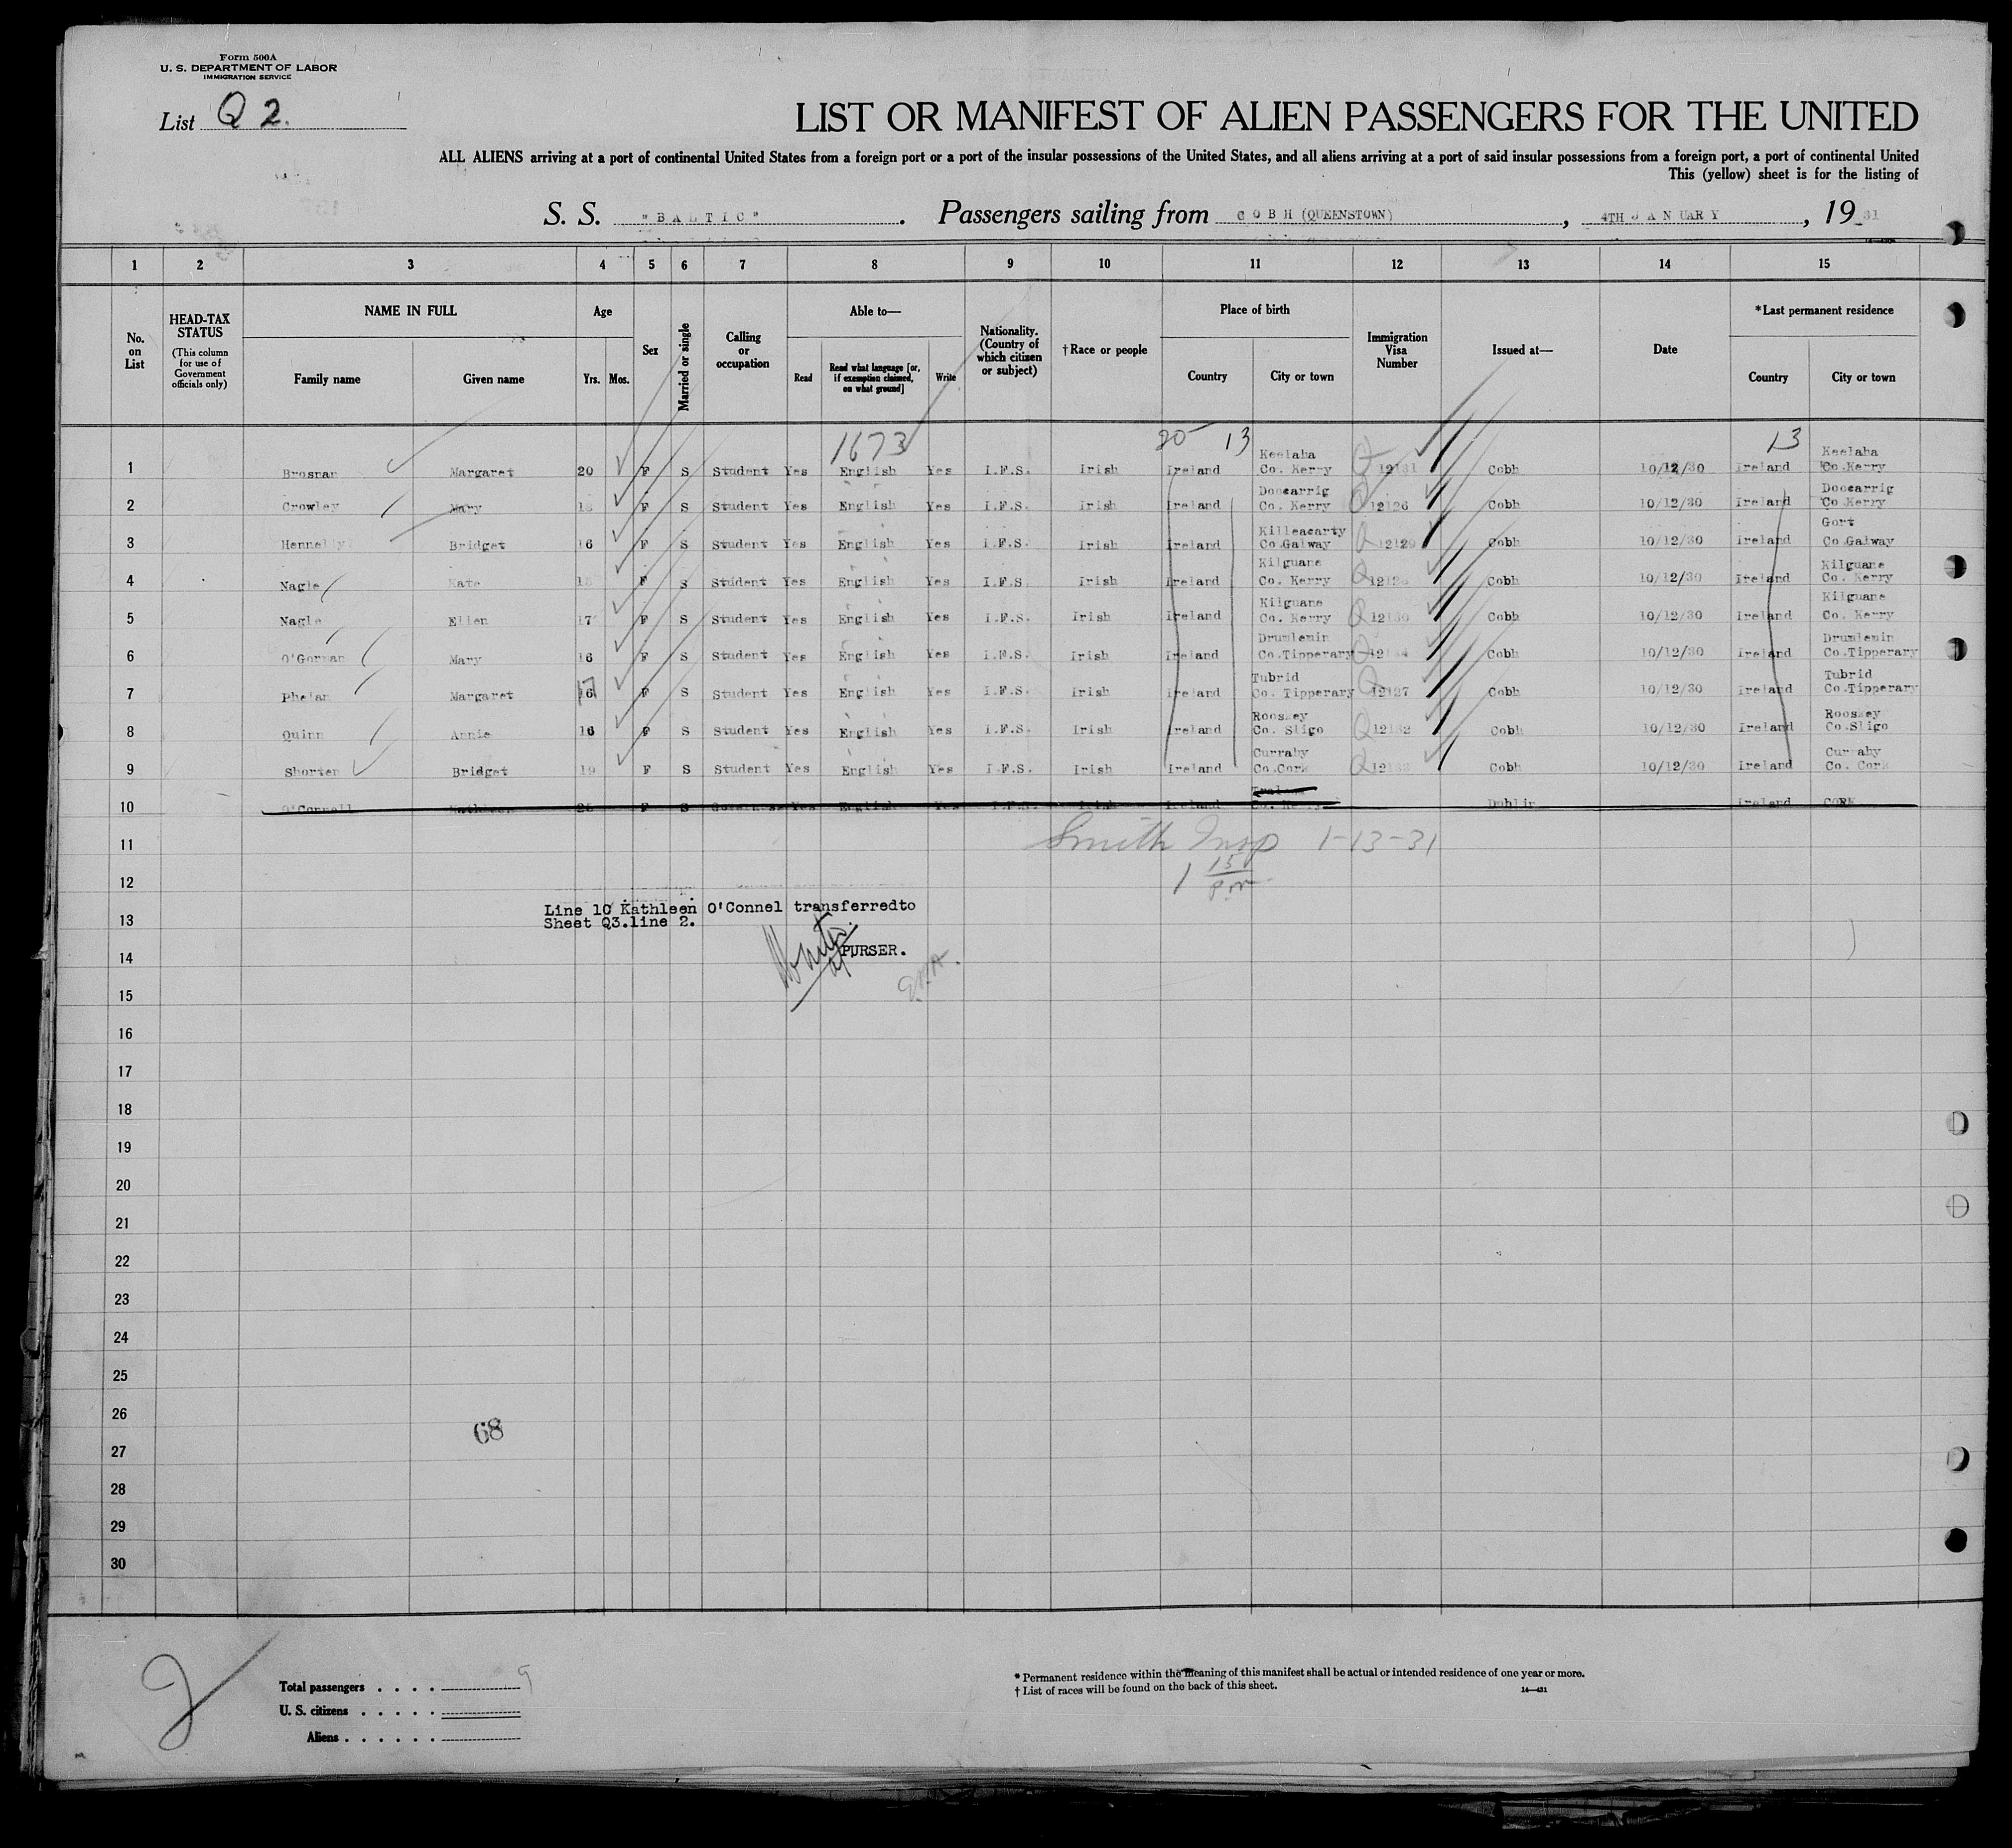 Form 500A
U. S. DEPARTMENT OF LABOR
IMMIGRATION SERVICE
List Q 2.
LIST OR MANIFEST OF ALIEN PASSENGERS FOR THE UNITED
ALL ALIENS arriving at a port of continental United States from a foreign port or a port of the insular possessions of the United States, and all aliens arriving at a port of said insular possessions from a foreign port, a port of continental United
This (yellow) sheet is for the listing of
S. S. "BALTIC". Passengers sailing from COBH (QUEENSTOWN), 4TH JANUARY, 1931
1 2 3 4 5 6 7 8 9 10 11 12 13 14 15
No. on List
HEAD-TAX STATUS
(This column for use of Government officials only)
NAME IN FULL
Family name Given name
Age
Yrs. Mos.
Sex
Married or single
Calling or occupation
Able to—
Read
Read what language [or, if exemption claimed, on what ground]
Write
Nationality. (Country of which citizen or subject)
†Race or people
Place of birth
Country City or town
Immigration Visa Number
Issued at—
Date
*Last permanent residence
Country City or town
1673 20 13 13
1 Brosnan Margaret 20 F S Student Yes English Yes I.F.S. Irish Ireland Keelaha Co. Kerry Q 12131 Cobh 10/12/30 Ireland Keelaha Co.Kerry
2 Crowley Mary F S Student Yes English Yes I.F.S. Irish Ireland Doocarrig Co. Kerry Q 12126 Cobh 10/12/30 Ireland Doocarrig Co.Kerry
3 Hennelly Bridget 16 F S Student Yes English Yes I.F.S. Irish Ireland Killeacarty Co.Galway Q 12129 Cobh 10/12/30 Ireland Gort Co.Galway
4 Nagle Kate F S Student Yes English Yes I.F.S. Irish Ireland Kilguane Co. Kerry Q Cobh 10/12/30 Ireland Kilguane Co. Kerry
5 Nagle Ellen 17 F S Student Yes English Yes I.F.S. Irish Ireland Kilguane Co. Kerry Q 12130 Cobh 10/12/30 Ireland Kilguane Co. Kerry
6 O'Gorman Mary 16 F S Student Yes English Yes I.F.S. Irish Ireland Drumlemin Co.Tipperary Q Cobh 10/12/30 Ireland Drumlemin Co.Tipperary
7 Phelan Margaret 17 F S Student Yes English Yes I.F.S. Irish Ireland Tubrid Co. Tipperary Q 12127 Cobh 10/12/30 Ireland Tubrid Co.Tipperary
8 Quinn Annie 16 F S Student Yes English Yes I.F.S. Irish Ireland Rooskey Co. Sligo Q 12132 Cobh 10/12/30 Ireland Rooskey Co.Sligo
9 Shorten Bridget 19 F S Student Yes English Yes I.F.S. Irish Ireland Currahy Co.Cork Q Cobh 10/12/30 Ireland Currahy Co. Cork
10 O'Connell Kathleen 25 F S Governess Yes English Yes I.F.S. Irish Ireland Co. Kerry Dublin Ireland CORK
11 Smith Insp 1-13-31
12 1 15 Pm
13 Line 10 Kathleen O'Connel transferredto
Sheet Q3.line 2.
14 PURSER.
15
16
17
18
19
20
21
22
23
24
25
26
68
27
28
29
30
2
Total passengers . . . . 9
U. S. citizens . . . . .
Aliens . . . . . .
* Permanent residence within the meaning of this manifest shall be actual or intended residence of one year or more.
† List of races will be found on the back of this sheet.
14—431